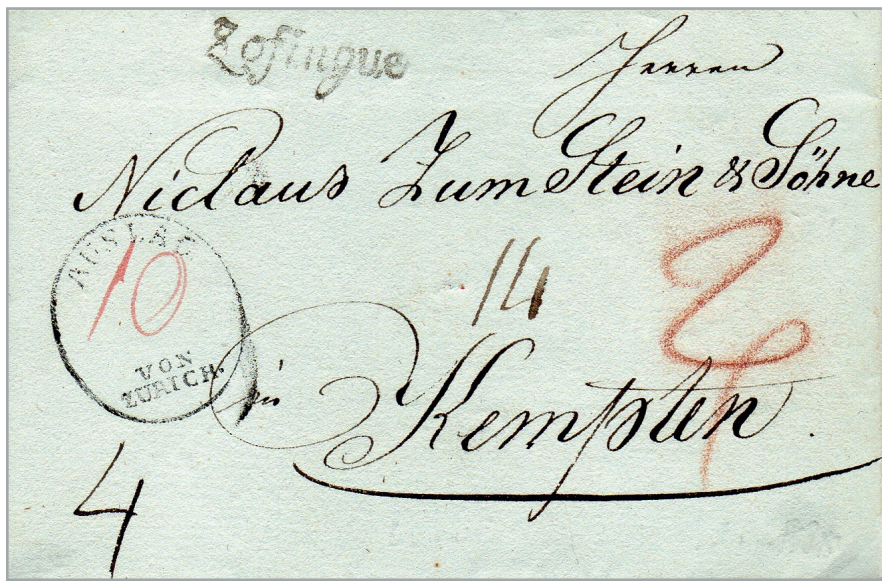 Zofingue
Herren
Niclaus Zum Stein & Söhne
AUSLAG
10
VON
ZÜRICH.
14
in Kempten.
4